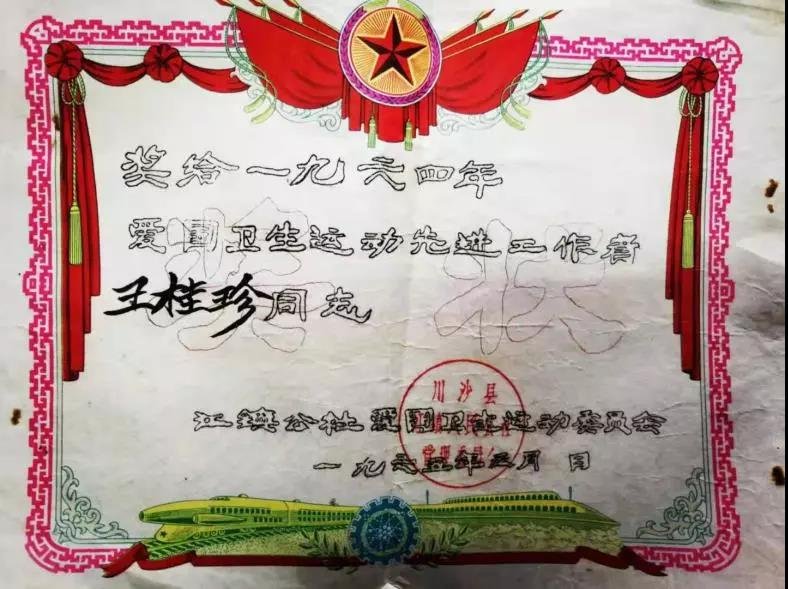 奖状
奖给一九六四年
爱国卫生运动先进工作者
王桂珍同志
江镇公社爱国卫生运动委员会
一九六五年三月 日
川沙县